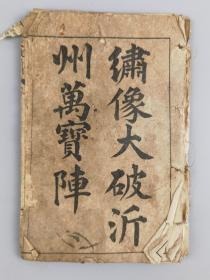 繡像大破沂
州萬寶陣